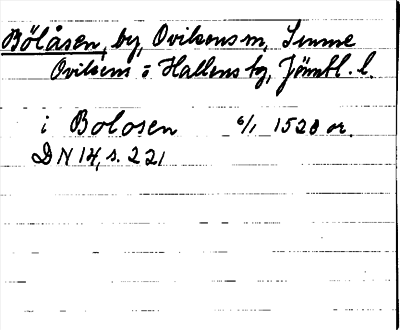 Bölåsen, by, Ovikens sn, Sunne
Ovikens o Hallens tg, Jämtl. l.
i Bolosen 6/1 1528 or.
DN 14, s. 221